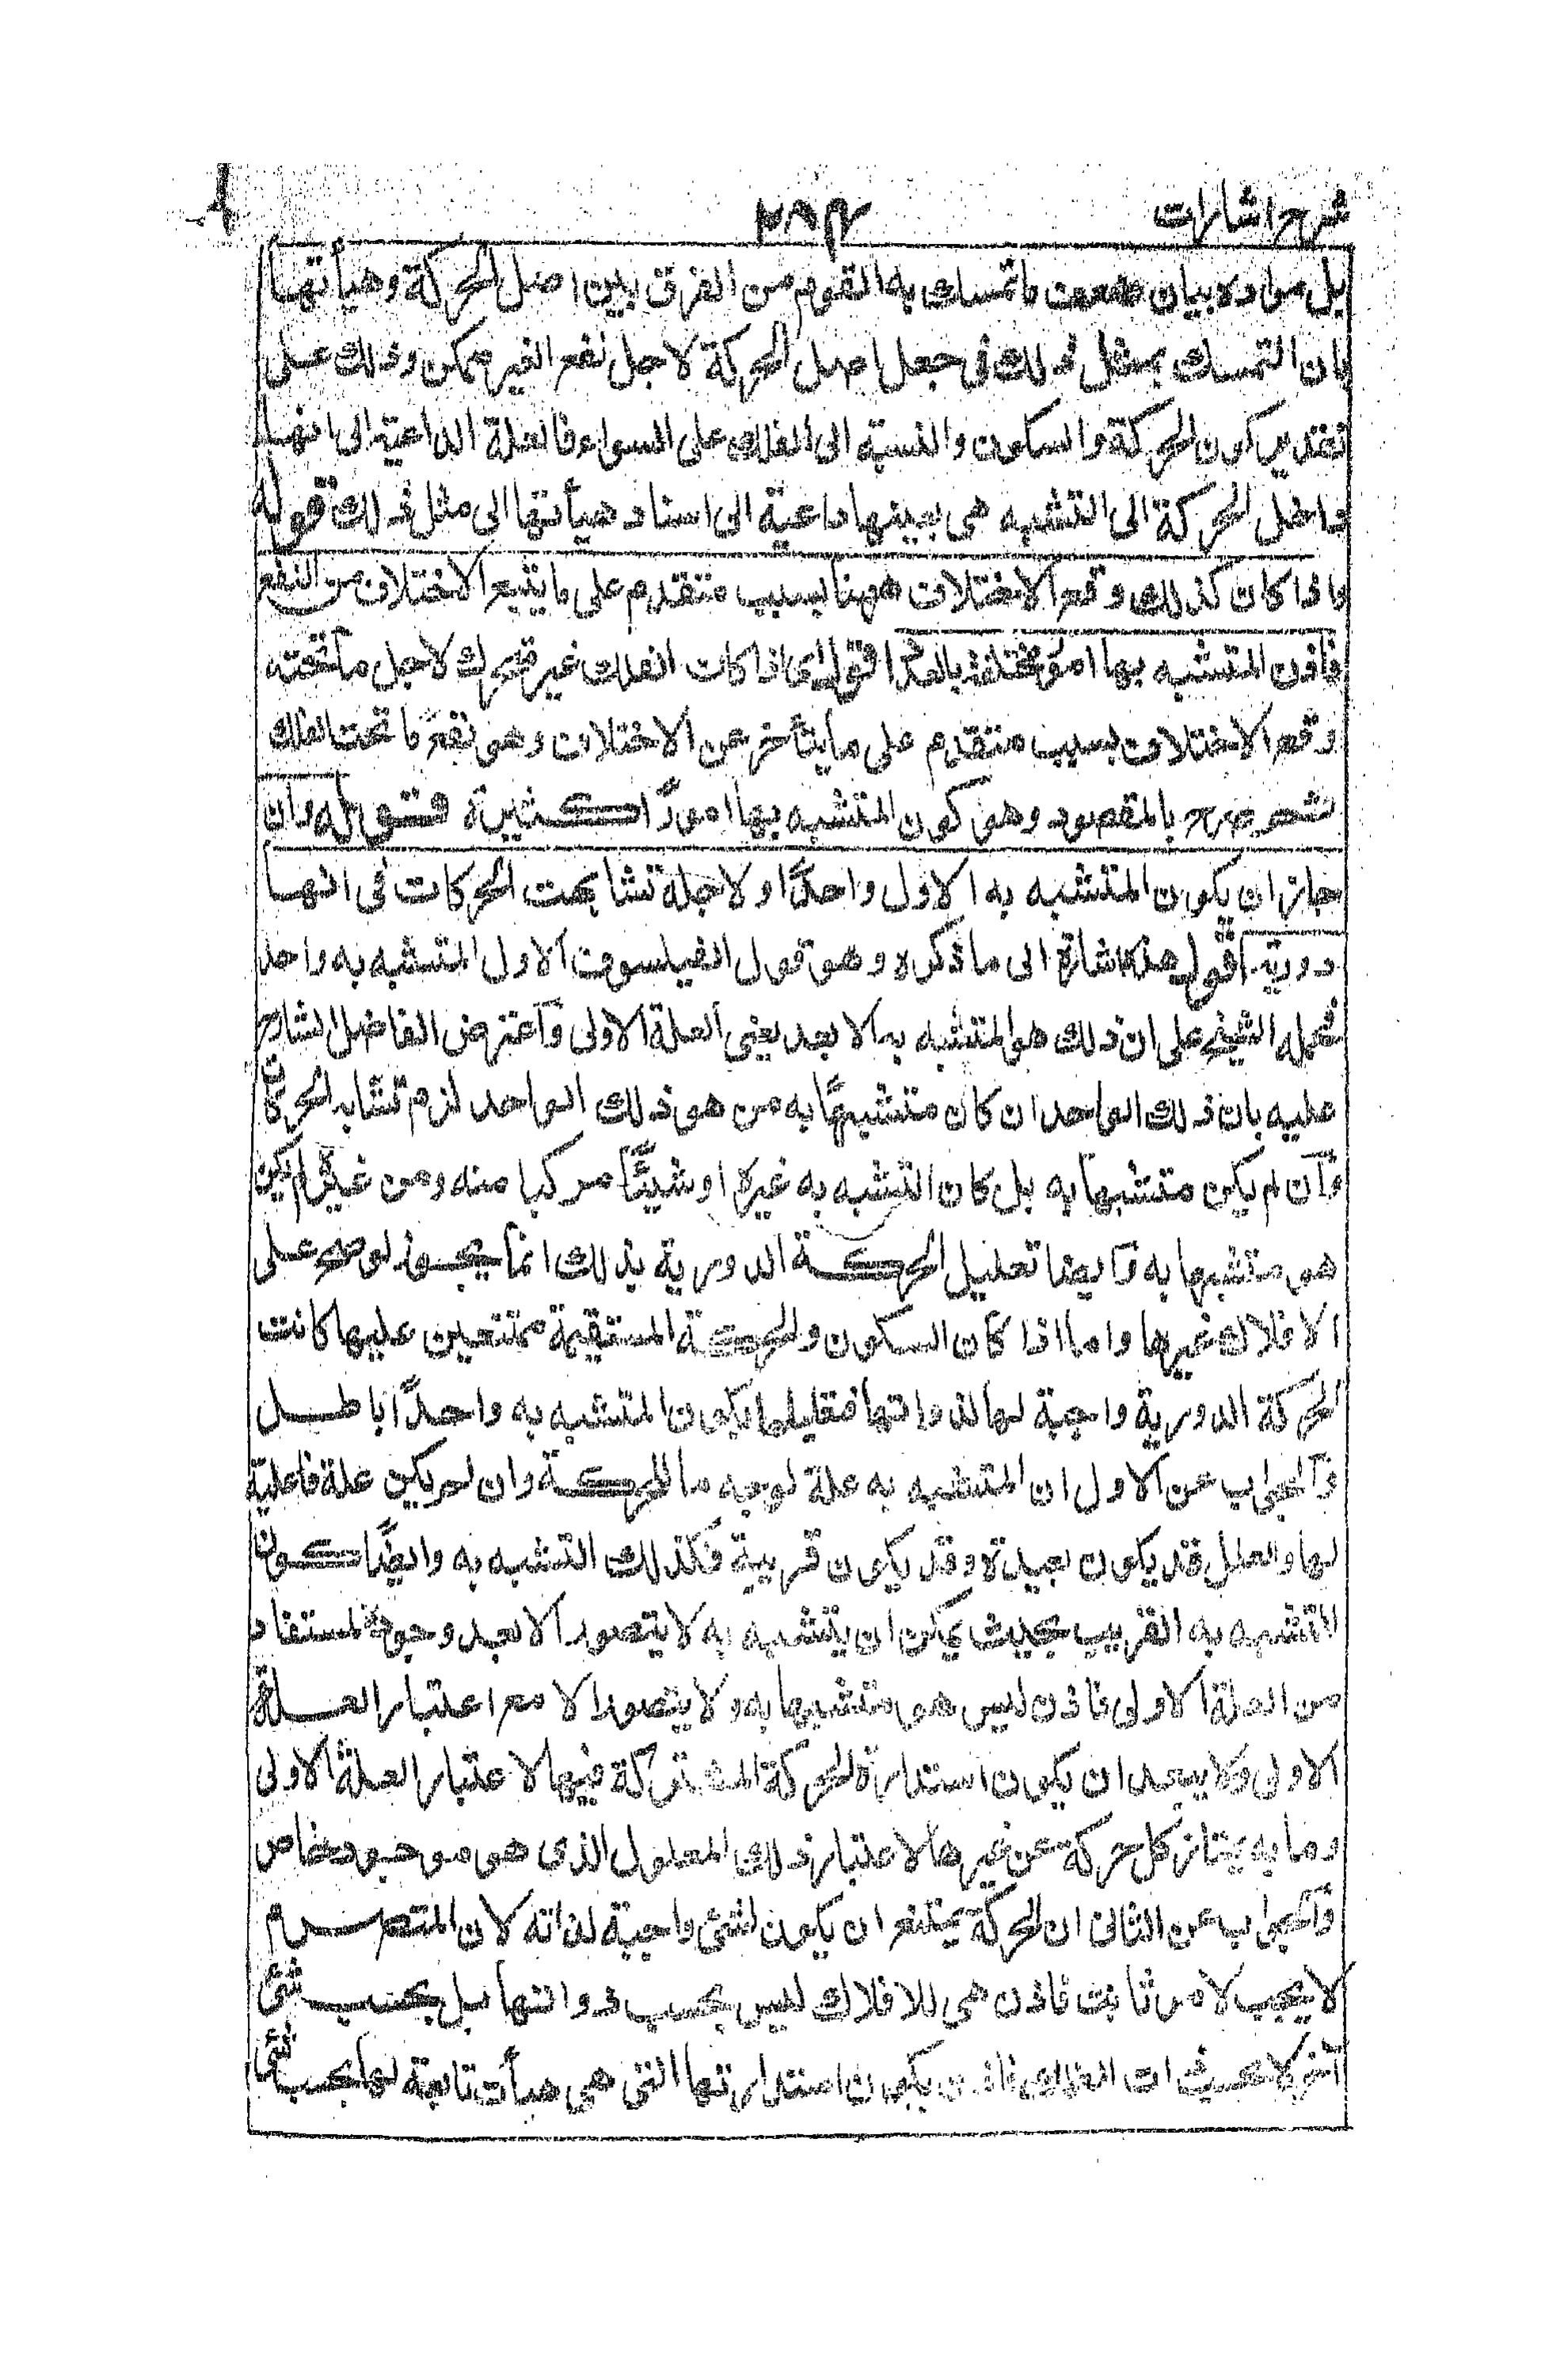 شرح اشارات
٢٨٤
بل مراده بيان ضعف ما تمسك به القوم من الفرق بين اصل الحركة وهيأتها
بان التمسك بمثل ذلك فى جعل اصل الحركة لاجل نفع الغير ممكن وذلك على
تقدير كون الحركة والسكون والنسبة الى الفلك على السواء فالعلة الداعية الى
اصل الحركة الى التشبه هى بعينها داعية الى اسناد هيأتها الى مثل ذلك قوله
واذا كان كذلك وقع الاختلاف ههنا بسبب متقدم على ما يتبع الاختلاف من النفع
فاذن المتشبه بها امور مختلفة بالعدد اقول اى اذا كانت الفلك غير متحرك لاجل ما تحته
وقع الاختلاف بسبب متقدم على ما يتأخر عن الاختلاف وهو نفع ما تحت الفلك
ثم صرح بالمقصود وهو كون المتشبه بها امورًا كثيرة قوله وان
جاز ان يكون المتشبه به الاول واحدًا ولاجله تشابهت الحركات فى انها
دورية اقول هذه اشارة الى ما ذكره وهو قول الفيلسوف الاول المتشبه به واحد
فحمله الشيخ على ان ذلك هو المتشبه به الابعد يعنى العلة الاولى وآعترض الفاضل الشارح
عليه بان ذلك الواحد ان كان متشبهًا به من هو ذلك الواحد لزم تشابه الحركات
وآن لم يكن متشبها به بل كان التشبه به غيره او شيئًا مركبا منه ومن غيره لم يكن
هو متشبها به وآيضا تعليل الحركة الدورية بذلك انما يجوز لو صح على
الافلاك غيرها واما اذا كان السكون والحركة المستقيمة ممتنعين عليها كانت
الحركة الدورية واجبة لها لذواتها فتعليلها بكون المتشبه به واحدًا باطل
وآلجواب عن الاول ان المتشبه به علة لوجه ما للحركة وان لم يكن علة فاعلية
لها والعلل قد يكون بعيدة وقد يكون قريبة فكذلك التشبه به وايضًا كون
المتشبه به القريب بحيث يمكن ان يتشبه به لا يتصور الا بعد وجوده المستفاد
من العلة الاولى فاذن ليس هو متشبها به ولا يتصور الا مع اعتبار العلة
الاولى ولا يبعد ان يكون استدارة الحركة المشتركة فيها لاعتبار العلة الاولى
وما به يمتاز كل حركة عن غيرها لاعتبار ذلك المعلول الذى هو موجود خاص
وآلجواب عن الثانى ان الحركة يمتنع ان يكون لشئ واجبة لذاته لان المتصرم
لا يجب لامر ثابت فاذن هى للافلاك ليس بحسب ذواتها بل بحسب شئ
آخر فاذن يكون استدارتها التى هى هيأت تابعة لها بحسب شئ